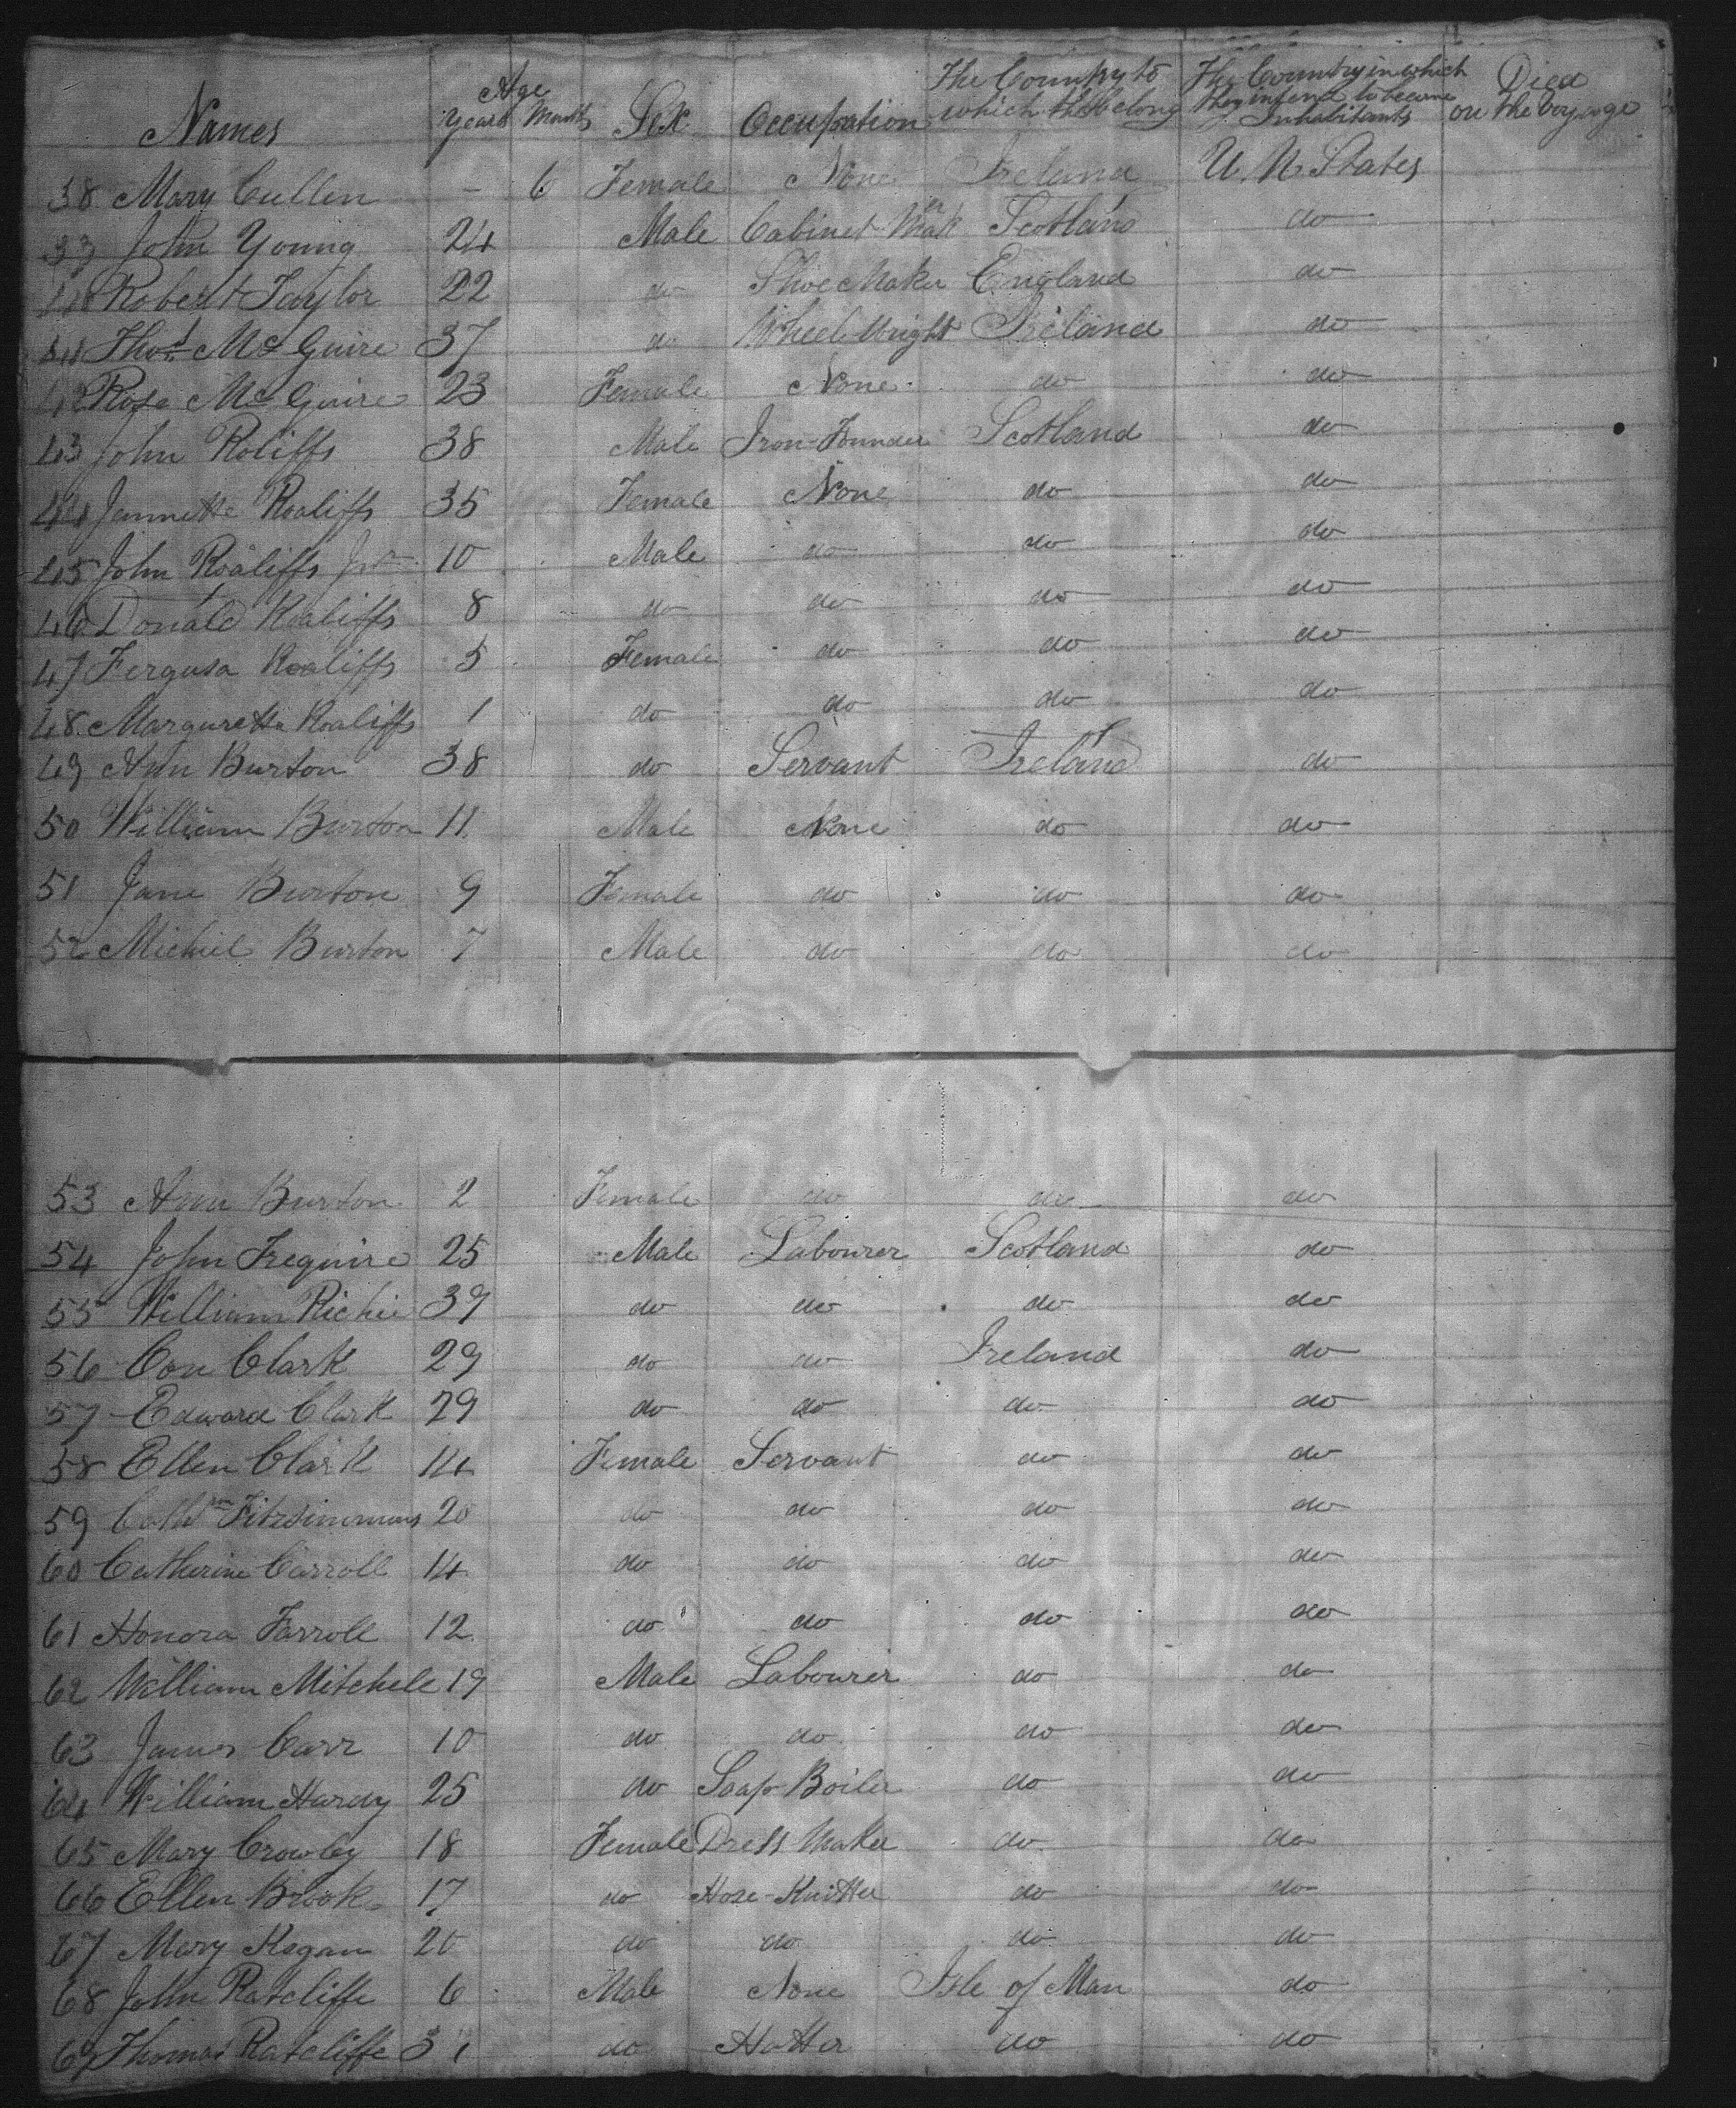 Names Age Years Months Sex Occupation The Country to which they belong The Country in which they intend to become Inhabitants Died on the Voyage
38 Mary Cullen - 6 Female None Ireland U N States
39 John Young 24 Male Cabinet Maker Scotland do
40 Robert Taylor 22 do Shoe Maker England do
41 Thos McGuire 37 do Wheel Wright Ireland do
42 Rose McGuire 23 Female None do do
43 John Roliffs 38 Male Iron-Founder Scotland do
44 Jennette Roaliffs 35 Female None do do
45 John Roaliffs Jnr 10 Male do do do
46 Donald Roaliffs 8 do do do do
47 Fergusa Roaliffs 5 Female do do do
48 Margaretta Roaliffs 1 do do do do
49 Ann Burton 38 do Servant Ireland do
50 William Burton 11 Male None do do
51 Jane Burton 9 Female do do do
52 Michiel Burton 7 Male do do do
53 Ann Burton 2 Female do do do
54 John Freguire 25 Male Labourer Scotland do
55 William Richie 39 do do do do
56 Con Clark 29 do do Ireland do
57 Edward Clark 29 do do do do
58 Ellen Clark 14 Female Servant do do
59 Cathne Fitzsimmons 20 do do do do
60 Catherine Carroll 14 do do do do
61 Honora Farrell 12 do do do do
62 William Mitchell 19 Male Labourer do do
63 James Carr 10 do do do do
64 William Hardy 25 do Soap Boiler do do
65 Mary Crowley 18 Female Dress Maker do do
66 Ellen Brook 17 do Hose-Knitter do do
67 Mary Kegan 20 do do do do
68 John Ratcliffe 6 Male None Isle of Man do
69 Thomas Ratcliffe 31 do Hatter do do